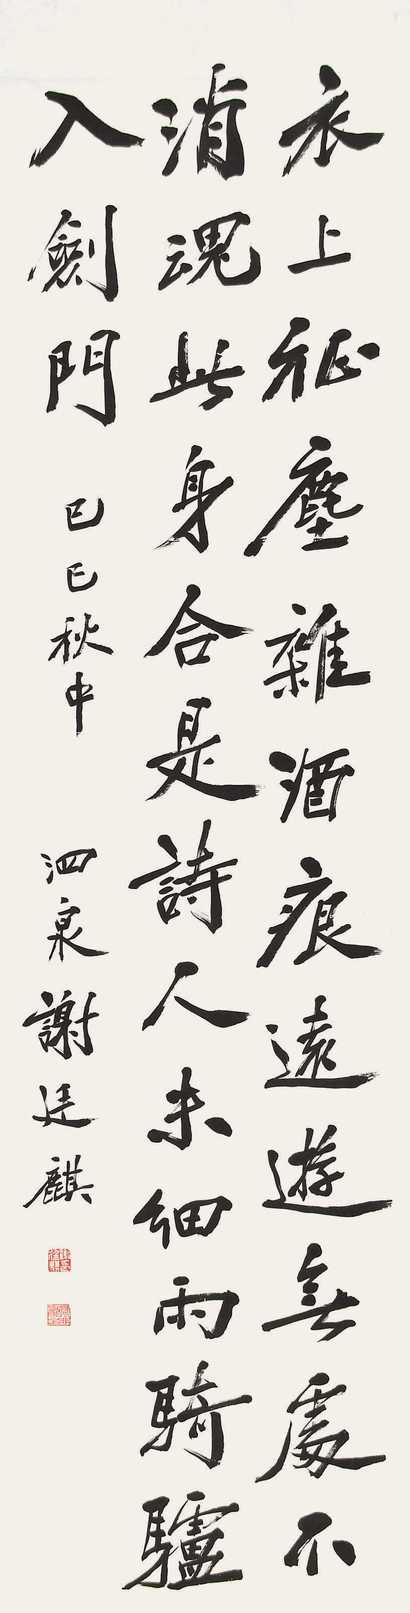 衣上征塵雜酒痕遠遊無處不
消魂此身合是詩人未細雨騎驢
入劍門
己巳秋中
泗泉謝廷麒